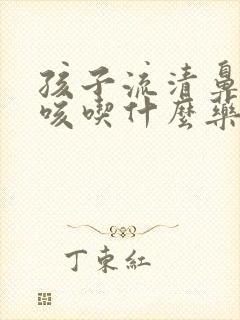 孩子流清鼻
咳喫什麽藥
丁東紅